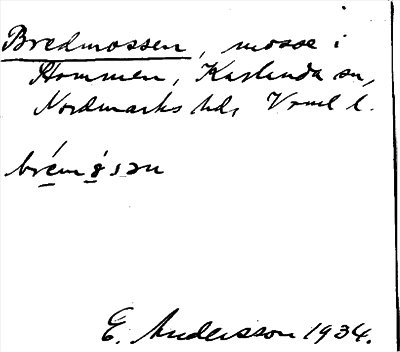 Bredmossen, mosse i
Hommen, Karlanda sn,
Nordmarks hd, Vrml l.
brémǿsən
E. Andersson 1934.